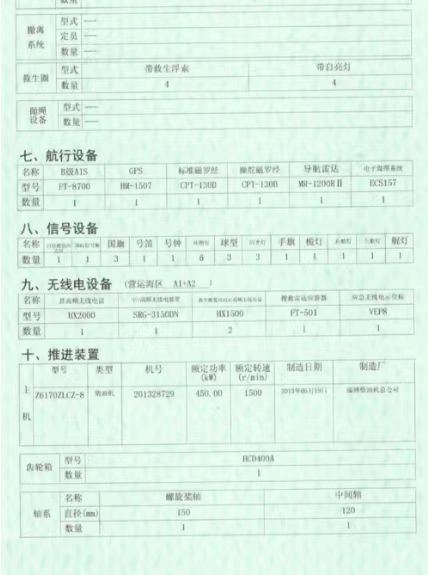 数量
撤离系统 型式 —
定员 —
数量 —
救生圈 型式 带救生浮索 带自亮灯
数量 4 4
抛绳设备 型式 —
数量 —
七、航行设备
名称 B级AIS GPS 标准磁罗经 操舵磁罗经 导航雷达 电子海图系统
型号 FT-8700 HM-1507 CPT-130D CPT-130B MR-1200RⅡ ECS157
数量 1 1 1 1 1 1
八、信号设备
名称 国旗 号笛 号钟 球型 闪光灯 手旗 桅灯 舷灯
数量 1 1 3 1 1 6 3 3 1 1 1 1 1
九、无线电设备 (营运海区 A1+A2 )
名称 甚高频无线电话 搜救雷达应答器 应急无线电示位标
型号 HX2000 SRG-3150DN HX1500 FT-501 VEP8
数量 1 1 2 1 1
十、推进装置
型号 类型 机号 额定功率(kW) 额定转速(r/min) 制造日期 制造厂
主机 Z6170ZLCZ-8 柴油机 201328729 450.00 1500 淄博柴油机总公司
齿轮箱 型号 HCD400A
数量 1
轴系 名称 螺旋桨轴 中间轴
直径(mm) 150 120
数量 1 1